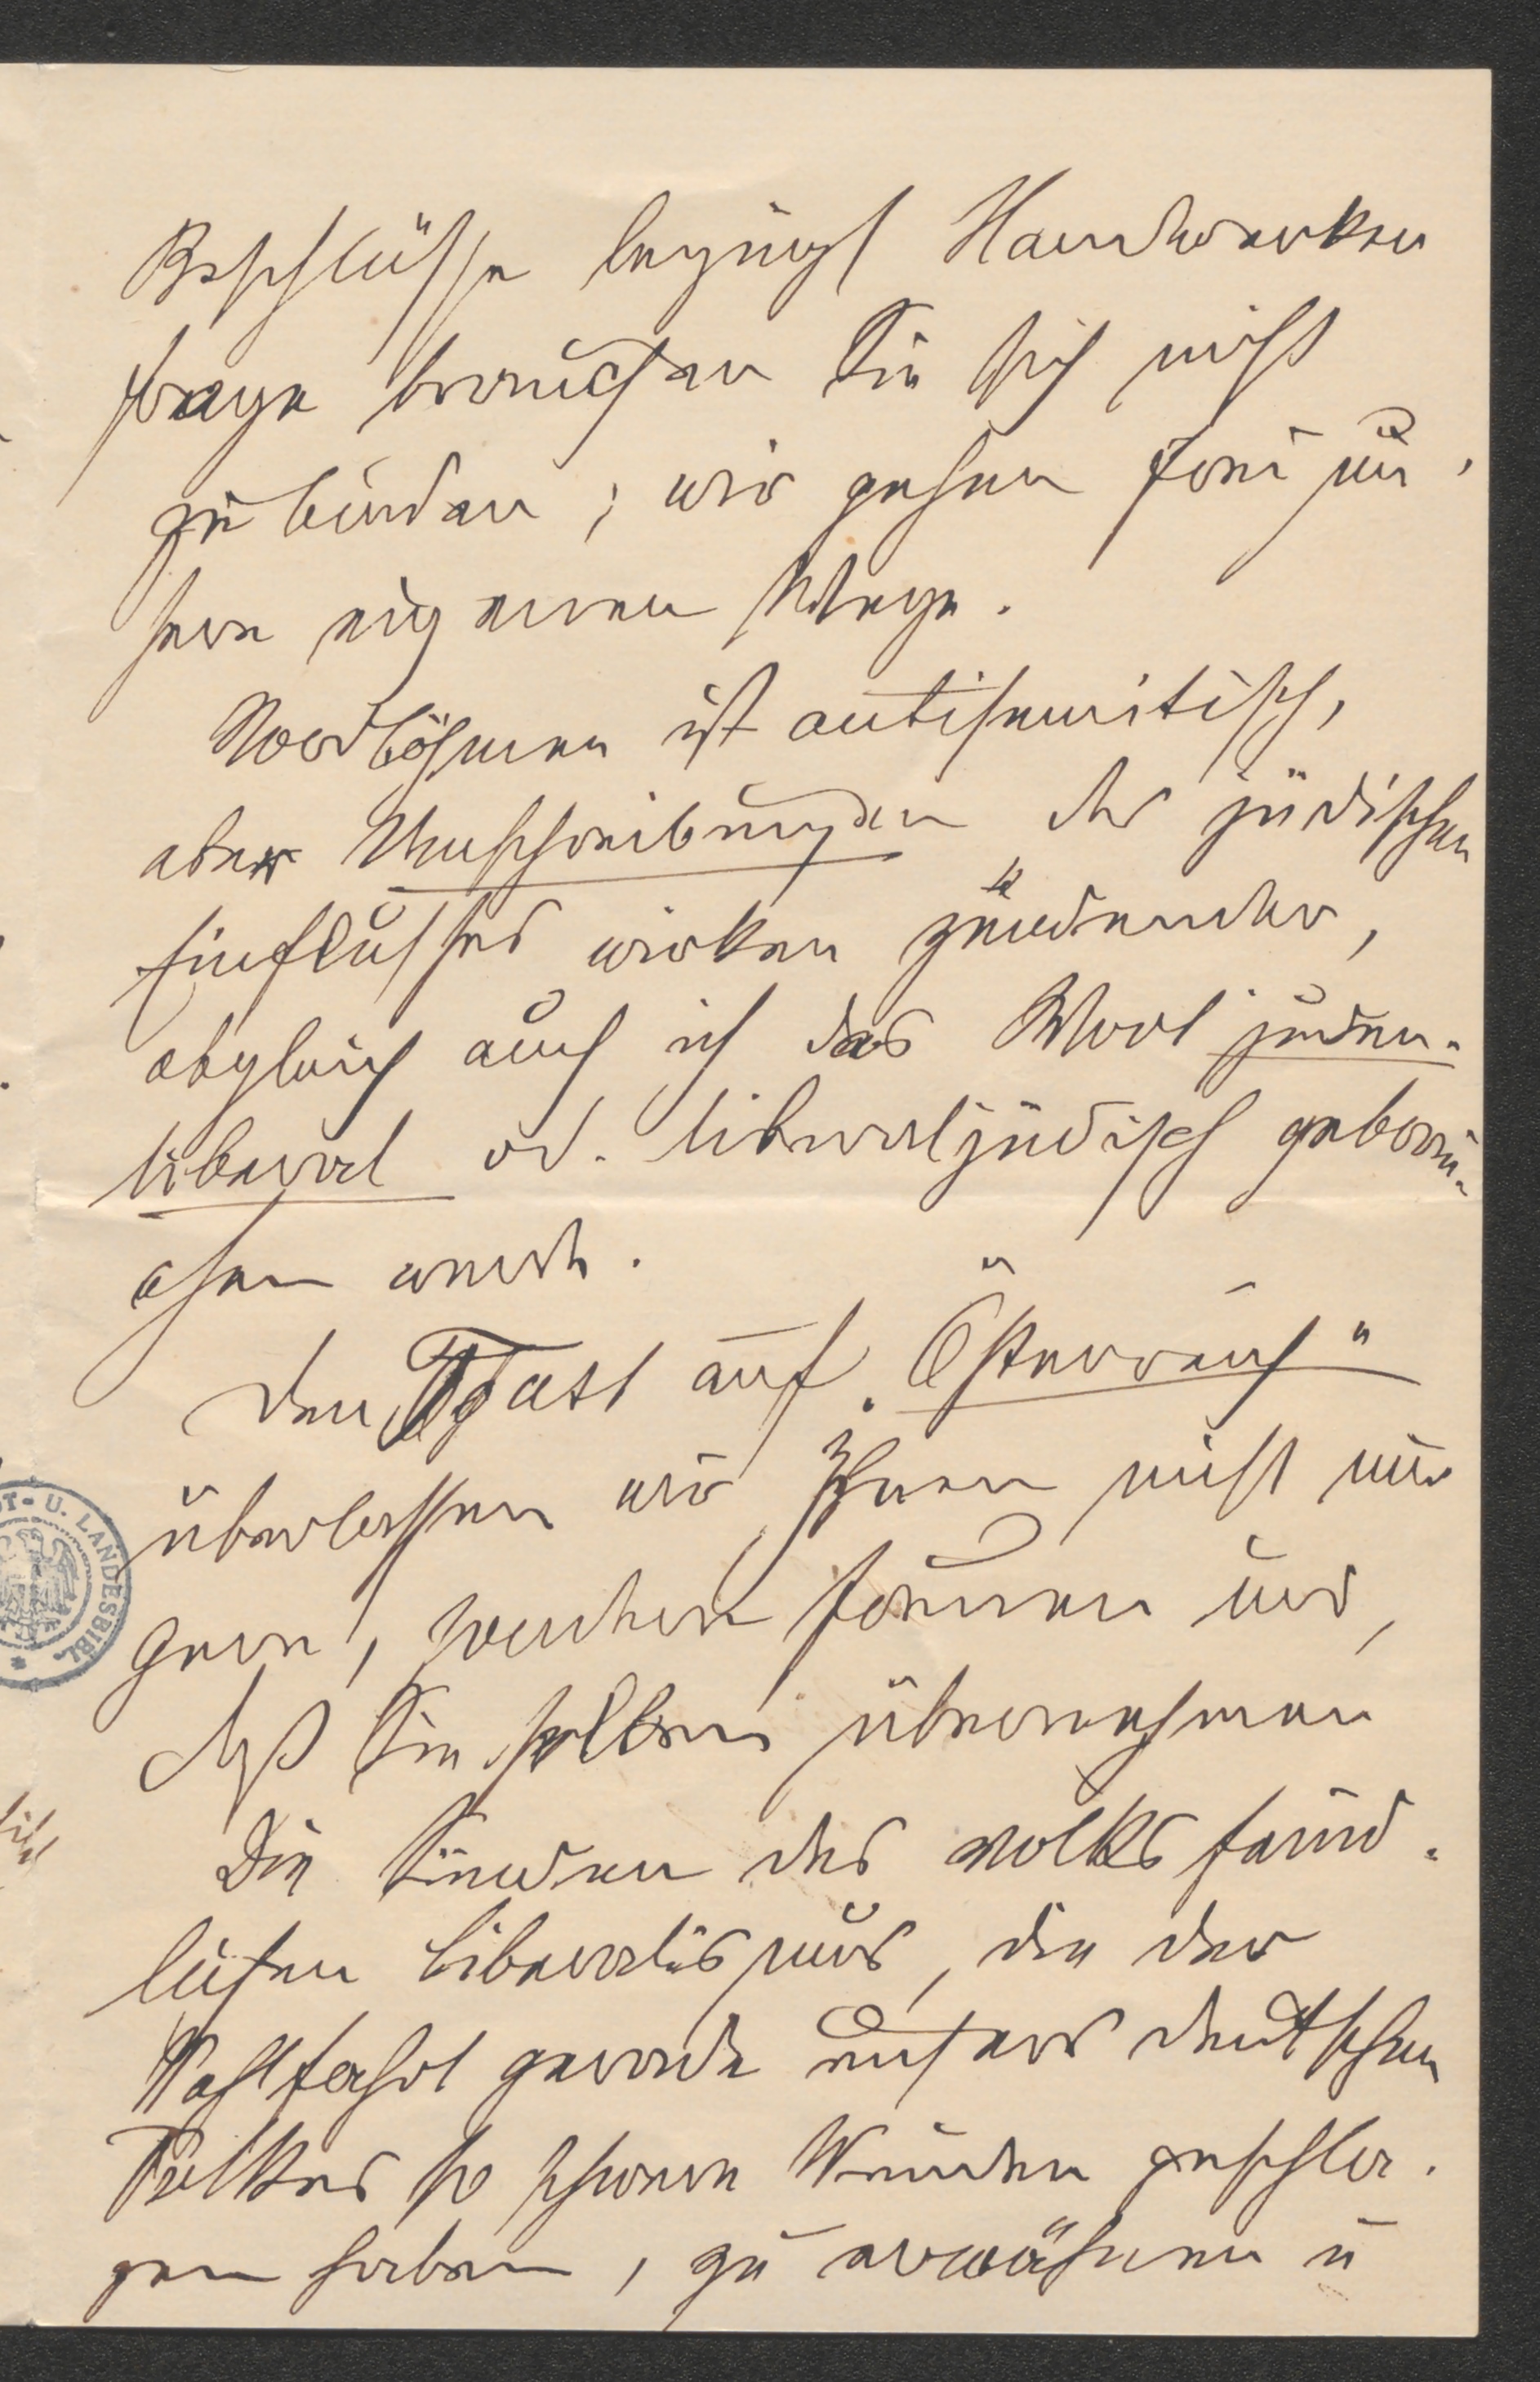 Beschlüsse bezügl Handwerker
frage brauchen Sie sich nicht
zu binden; wir gehen frei un-
sere eigenen Wege.
Nordböhmen ist antisemitisch,
aber Umschreibungen des jüdischen
Einflusses wirken zündender,
obgleich auch ich das Wort juden-
liberal od. liberaljüdisch gebrau-
chen werde.
Den Toast auf „Österreich"
überlassen wir Ihnen nicht nur
gern, sondern freuen uns,
daß Sie selben übernehmen
Die Sünden des volksfeind-
lichen Liberalismus, die der
Wohlfahrt gerade unsers deutschen
Volkes so schwere Wunden geschla-
gen haben, zu erwähnen u
T- U. LANDESBIBL.